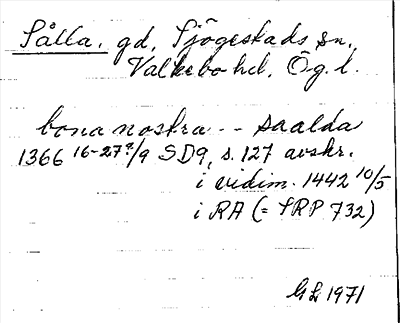 Sålla. gd, Sjögestads sn.
Valkebo hd, Ög. l.
bona nostra -- saalda
1366 16-27?/9 SD9, s. 127 avskr.
i vidim. 1442 10/5
i RA (= SRP 732)
GL 1971